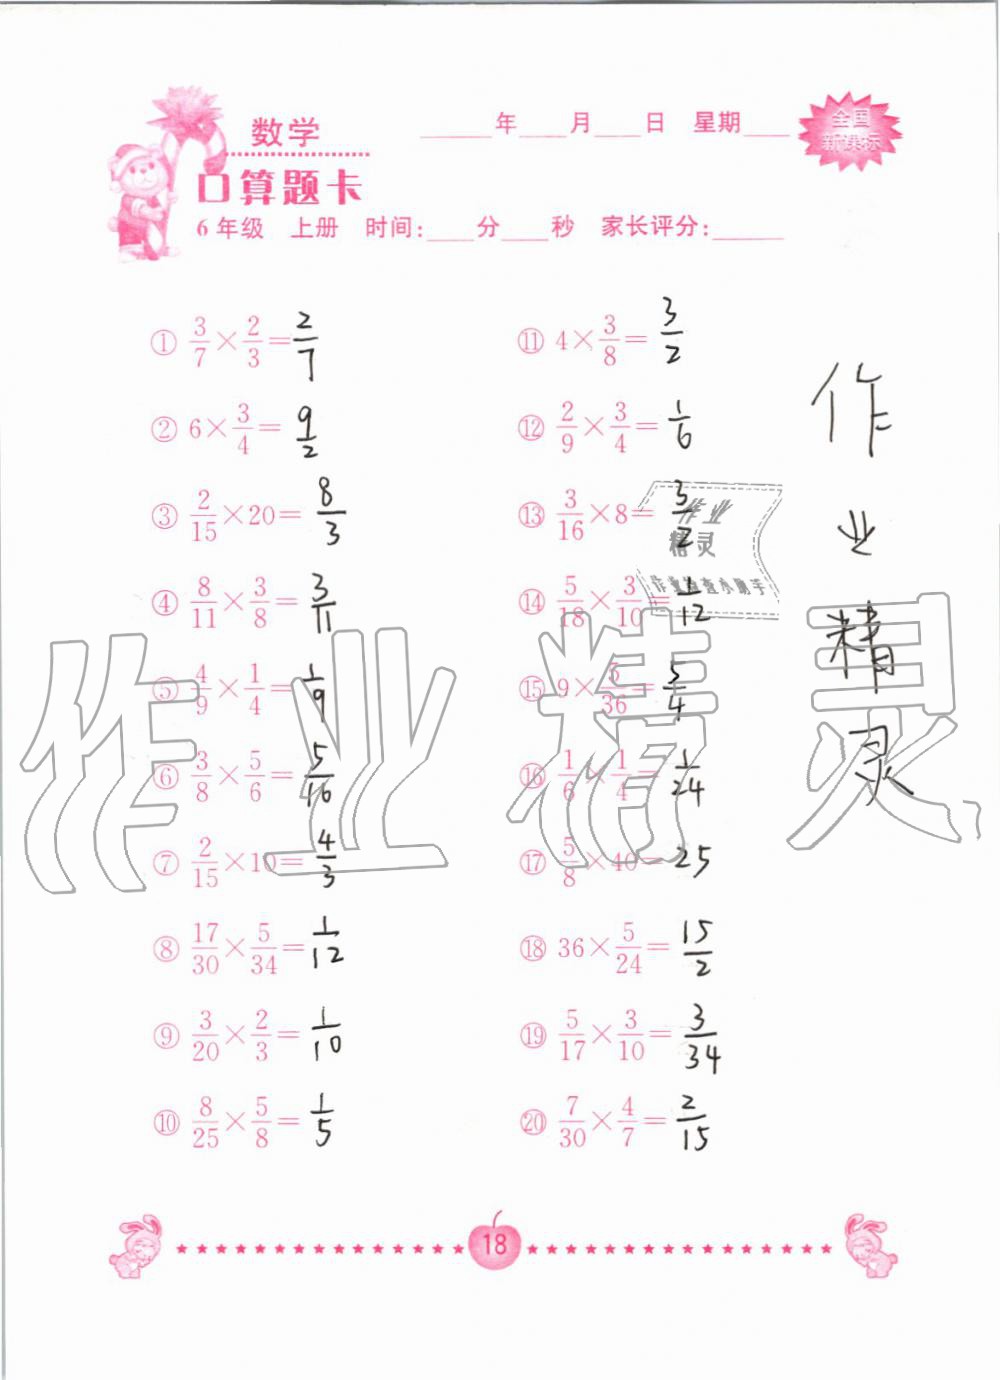 数学
____年____月____日 星期____
全国
新课标
口算题卡
6年级 上册 时间:____分____秒 家长评分:______
① 3/7 × 2/3 = 2/7
② 6 × 3/4 = 9/2
③ 2/15 × 20 = 8/3
④ 8/11 × 3/8 = 3/11
⑤ 4/9 × 1/4 = 1/9
⑥ 3/8 × 5/6 = 5/16
⑦ 2/15 × 10 = 4/3
⑧ 17/30 × 5/34 = 1/12
⑨ 3/20 × 2/3 = 1/10
⑩ 8/25 × 5/8 = 1/5
⑪ 4 × 3/8 = 3/2
⑫ 2/9 × 3/4 = 1/6
⑬ 3/16 × 8 = 3/2
⑭ 5/18 × 3/10 = 1/12
⑮ 9 × 5/36 = 5/4
⑯ 1/6 × 1/4 = 1/24
⑰ 5/8 × 40 = 25
⑱ 36 × 5/24 = 15/2
⑲ 5/17 × 3/10 = 3/34
⑳ 7/30 × 4/7 = 2/15
作
业
精
灵
作业
精灵
作业检查小助手
作业精灵
18